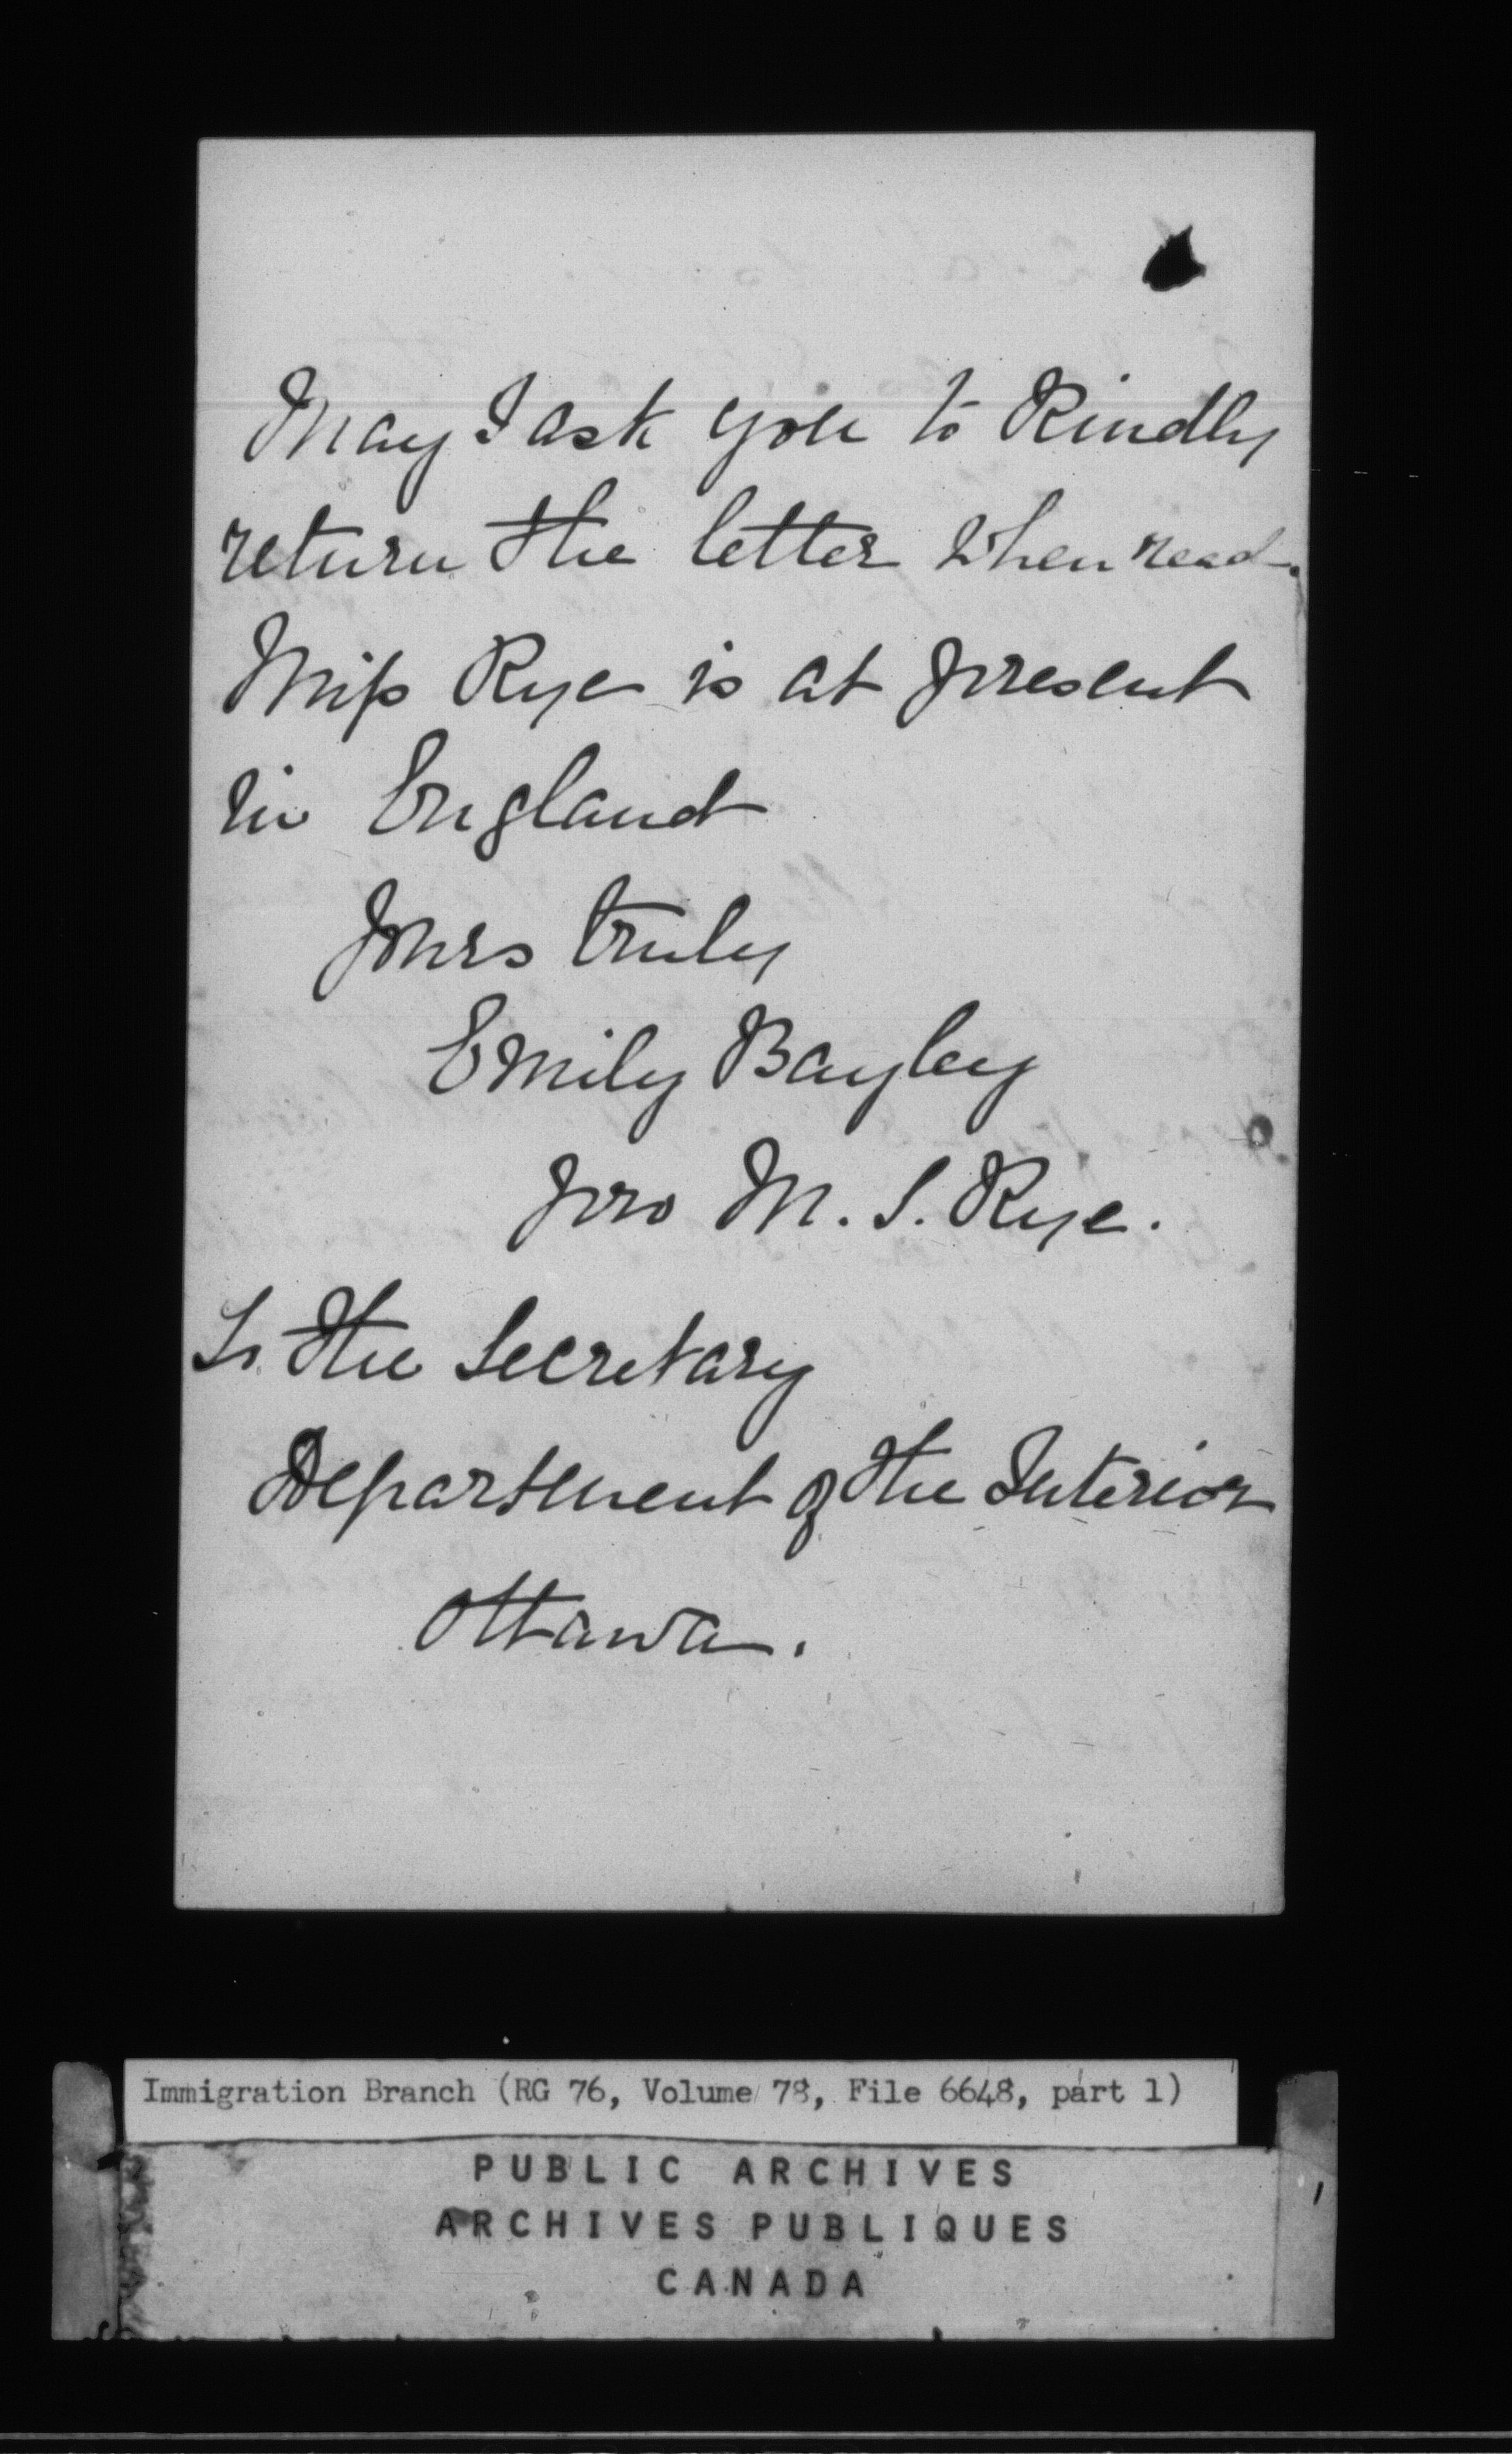 May I ask you to Kindly
return the letter when read.
Miss Rye is at present
in England
Yours truly
Emily Bayley
pro M. S. Rye.
To the Secretary
Department of the Interior
Ottawa.
Immigration Branch (RG 76, Volume 78, File 6648, part 1)
PUBLIC ARCHIVES
ARCHIVES PUBLIQUES
CANADA